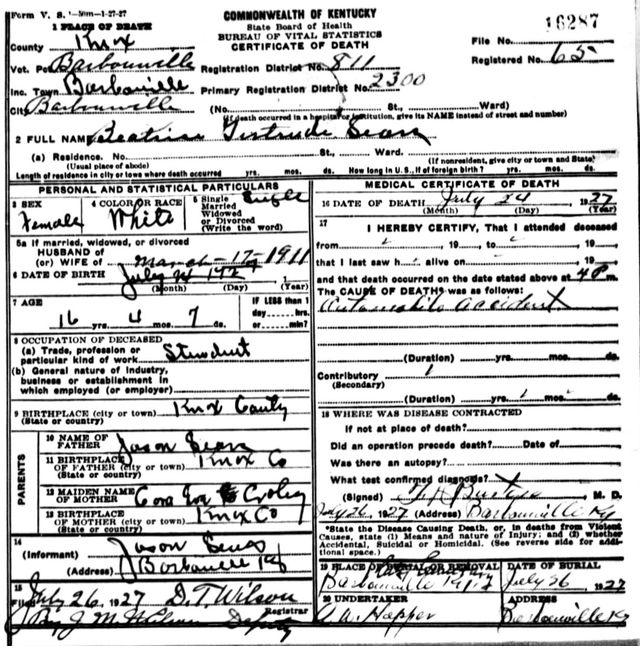 Form V. S. 1-50m-1-27-27
COMMONWEALTH OF KENTUCKY
State Board of Health
BUREAU OF VITAL STATISTICS
CERTIFICATE OF DEATH
16287
File No.
Registered No. 65
1 PLACE OF DEATH
County Knox
Vot. Barbourville
Inc. Town Barbourville
City Barbourville
Registration District No. 811
Primary Registration District No. 2300
(No. St., Ward)
(If death occurred in a hospital or institution, give its NAME instead of street and number)
2 FULL NAME Beatrice Gertrude Sears
(a) Residence. No. St., Ward.
(Usual place of abode) (If nonresident, give city or town and State)
Length of residence in city or town where death occurred yrs. mos. ds. How long in U.S., if of foreign birth? yrs. mos. ds.
PERSONAL AND STATISTICAL PARTICULARS
3 SEX Female
4 COLOR OR RACE White
5 Single Married Widowed or Divorced (Write the word) Single
5a If married, widowed, or divorced
HUSBAND of
(or) WIFE of
March-17-1911
6 DATE OF BIRTH July 24
(Month) (Day) (Year)
7 AGE
16 yrs. 4 mos. 7 ds.
IF LESS than 1 day----hrs. or----min?
8 OCCUPATION OF DECEASED
(a) Trade, profession or particular kind of work Student
(b) General nature of industry, business or establishment in which employed (or employer)
9 BIRTHPLACE (city or town) Knox County
(State or country)
PARENTS
10 NAME OF FATHER Jason Sears
11 BIRTHPLACE OF FATHER (city or town) Knox Co
(State or country)
12 MAIDEN NAME OF MOTHER Cora Croley
13 BIRTHPLACE OF MOTHER (city or town) Knox Co
(State or country)
14
(Informant) Jason Sears
(Address) Barbourville Ky
15
Filed July 26, 1927 D. T. Wilson
Registrar
By J M Wilson Deputy
MEDICAL CERTIFICATE OF DEATH
16 DATE OF DEATH July 24 1927
(Month) (Day) (Year)
17
I HEREBY CERTIFY, That I attended deceased
from , 19 , to , 19 ,
that I last saw h alive on , 19 ,
and that death occurred on the date stated above at 4 P m.
The CAUSE OF DEATH* was as follows:
Automobile accident
(Duration) yrs. mos. ds.
Contributory
(Secondary)
(Duration) yrs. mos. ds.
18 WHERE WAS DISEASE CONTRACTED
If not at place of death?
Did an operation precede death? Date of
Was there an autopsy?
What test confirmed diagnosis?
(Signed) M. D.
July 26, 1927 (Address) Barbourville Ky
*State the Disease Causing Death, or, in deaths from Violent
Causes, state (1) Means and nature of Injury; and (2) whether
Accidental, Suicidal or Homicidal. (See reverse side for addi-
tional space.)
19 PLACE OF BURIAL OR REMOVAL
Barbourville Ky
DATE OF BURIAL
July 26 1927
20 UNDERTAKER
A. A. Hopper
ADDRESS
Barbourville Ky